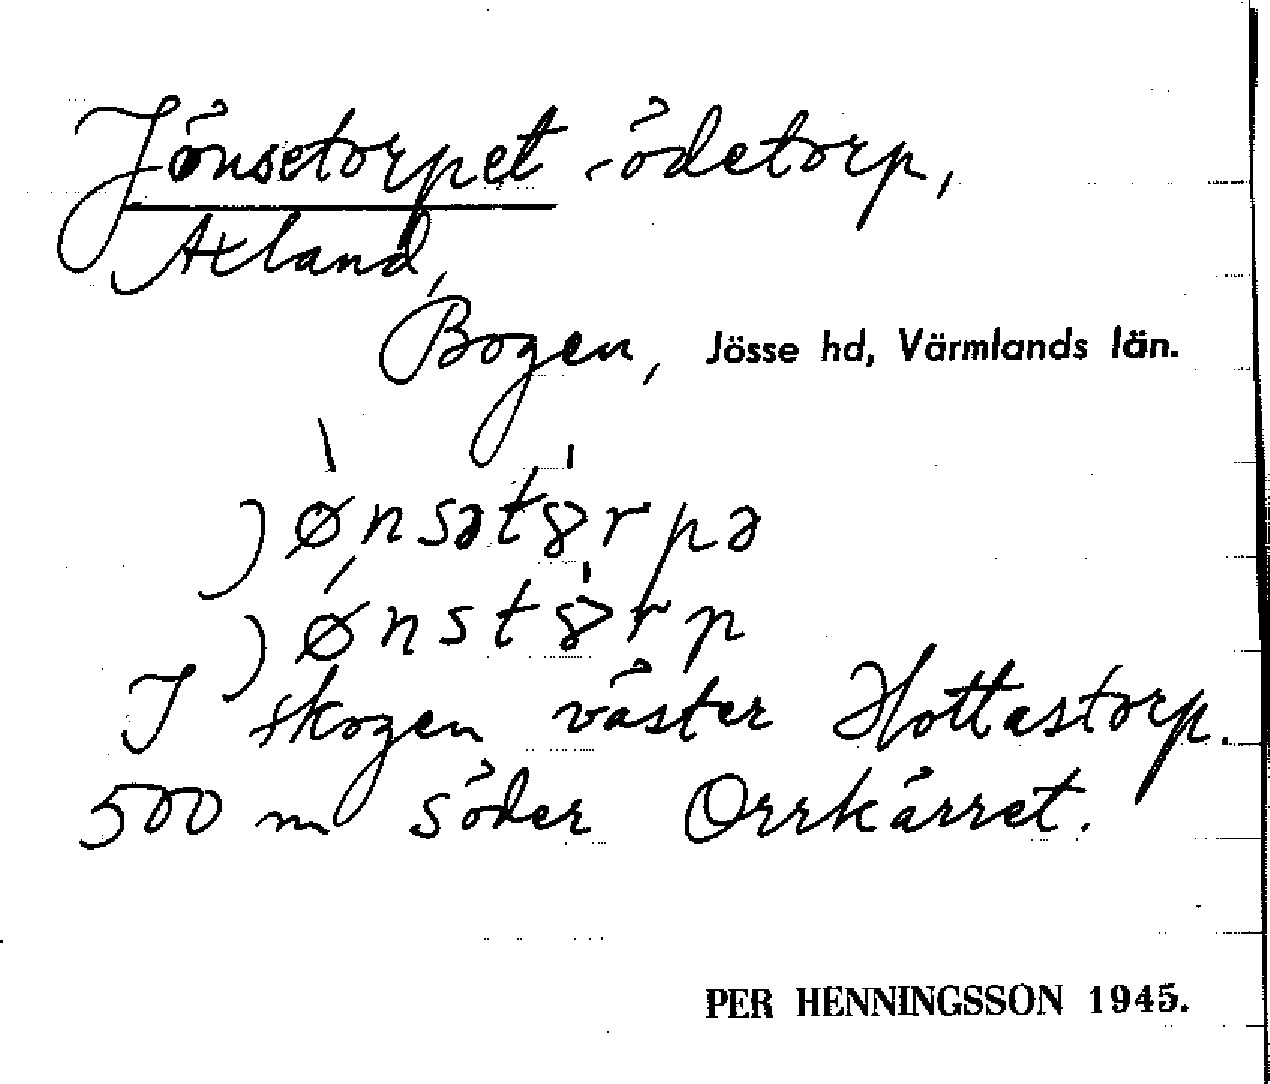 Jönsetorpet - ödetorp,
Axland,
Bogen, Jösse hd, Värmlands län.
jø̀nsət8̍rpə
jǿnst8̍rp
I skogen väster Hottastorp.
500 m söder Orrkärret.
PER HENNINGSSON 1945.